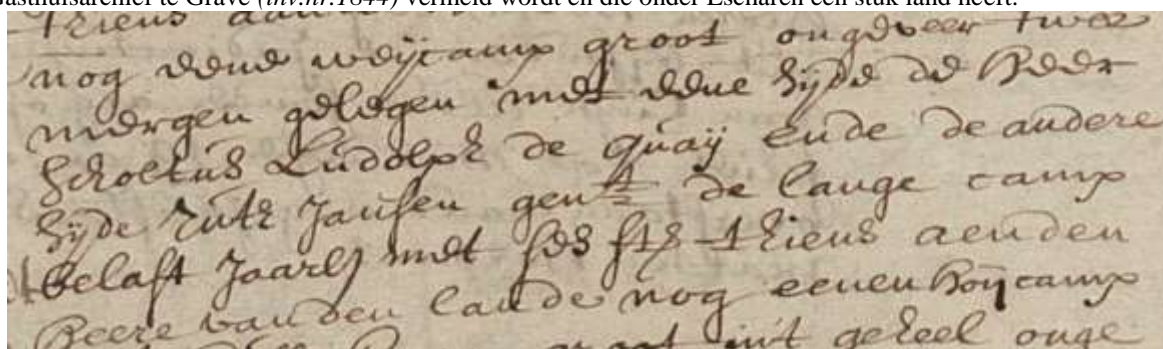 Gasthuisarchief te Grave (inv.nr.1844) vermeld wordt en die onder Escharen een stuk land heeft.
thiens
nog eene weijcamp groot ongeveer twee
mergen gelegen met eene zijde de Heer
Scholtus Ludolph de Quaij ende de andere
zijde Jansen gent de lange camp
belast Jaarlx met ses sts thiens aen den
Heere van den lande nog eenen hoijcamp
groot int geheel onge